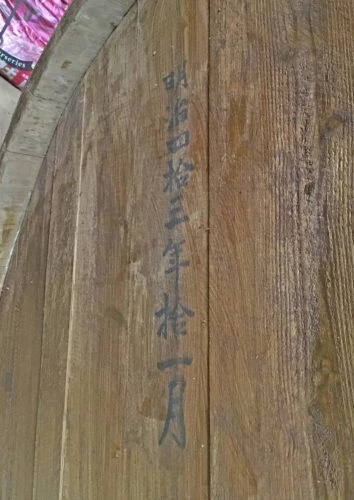 明治四拾三年拾一月
rseries